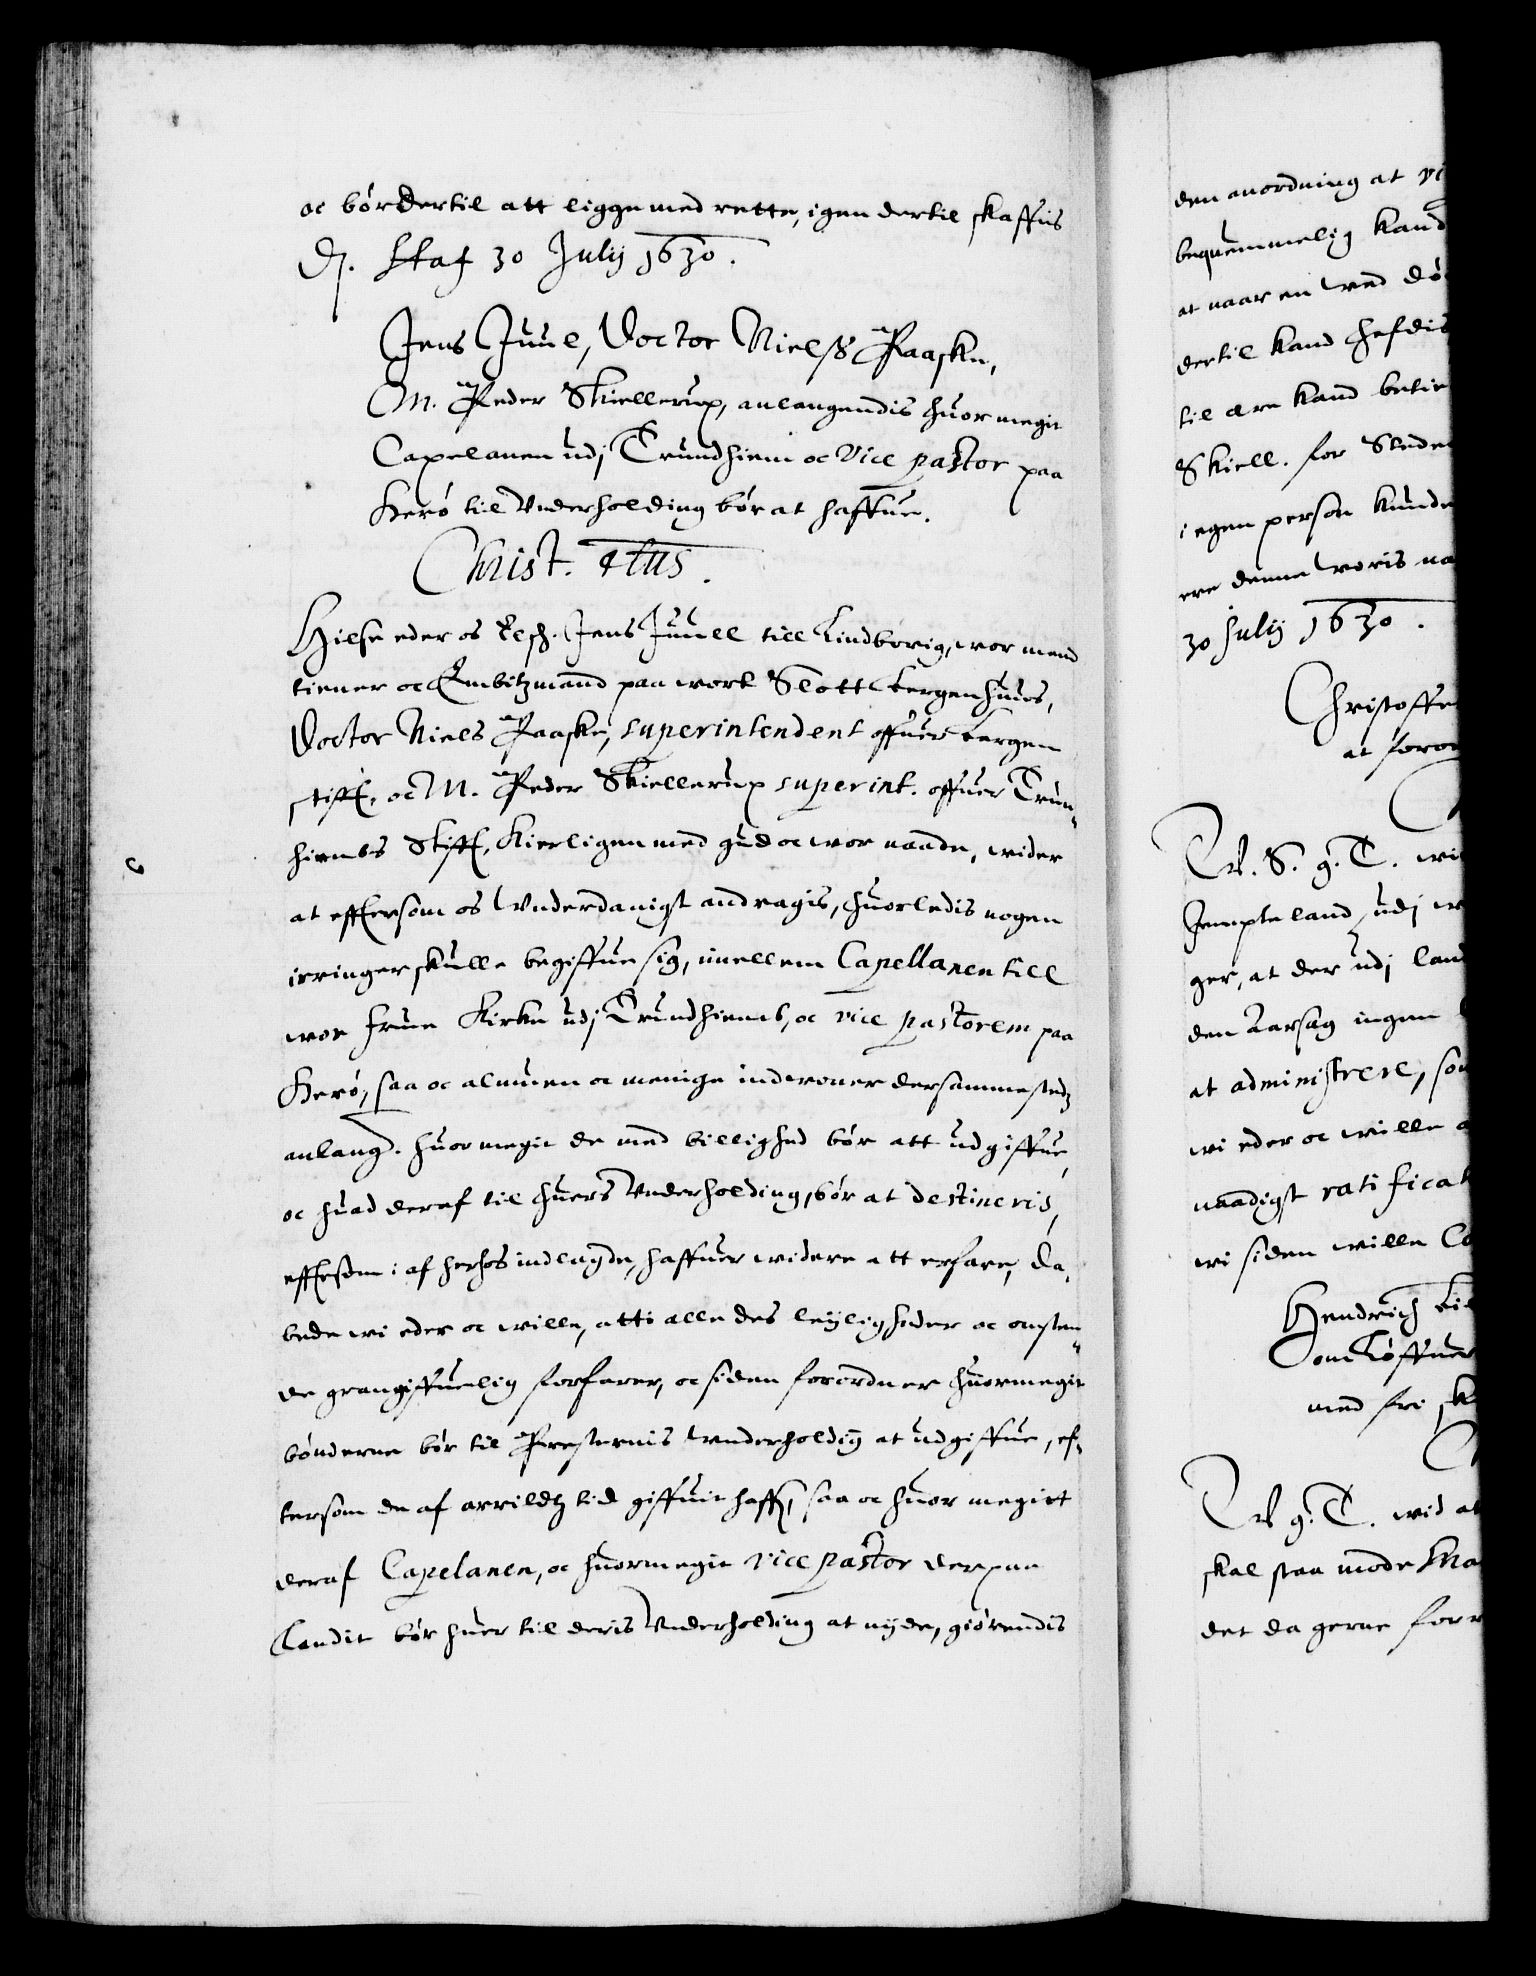 oc bør dertil att ligge med rette, igen dertil skaffis
D. Staf 30 Julij 1630.
Jens Juul, Doctor Nielss Paaske,
M. Peder Skiellerup, anlangendis huor megit
Capelanen udj Trundhiem oc Vice pastor paa
Herø til Vnderholding bør at haffue.
Christ. 4tus.
Hilse eder os Elsk. Jens Juuell till Lindborig, wor mand
tiener oc Embitzmand paa wort Slott Bergenhuus,
Doctor Niels Paaske, superintendent offuer Bergen
stifft, oc M. Peder Skiellerup superint. offuer Trun-
hiembs Stifft, Kierligen med gud oc wor naade, wider
at efftersom os Vnderdanigst andragis, huorledis nogen
irringer skulle begiffue sig, imellem Capellanen till
wor frue Kirke udj Trundhiemb, oc vice pastorem paa
Herø, saa oc almuen oc menige indwoner dersammestedz
anlang. huor megit de med billighed bør att udgiffue,
oc huad deraf til huers Vnderholding, bør at destineris,
efftersom i af herhos indlagde, haffuer widere att erfare, da
bede wi eder oc wille, att i alle des leyligheder oc omsten-
de grangiffuelig forfarer, oc siden forordner huormegit
bønderne bør til Presternis Vnderholding at udgiffue, ef-
tersom de af arrildtz tid giffuit haffr, saa oc huor megitt
deraf Capelanen, oc huormegit vice pastor der paa
Landit bør huer til deris Vnderholding at nyde, giørendis
den anordning at vi
beqvemmelig kand
at naar en ved dø
dertil kand hefdis
til ære kand betie
Skiell. for Studen
i egen person kunde
ere denne woris na
30 Julij 1630.
Christoffe
at foror
W. S. g. T. wi
Jempteland, udj w
ger, at der udj land
den Aarsag ingen
at administrere, so
wi eder oc wille a
naadigst ratificat
wi siden wille Co
Hendrich Bi
om Løffuer
med fri sk
W g. T. wid at
skal staa mode Ma
det da gerne forr